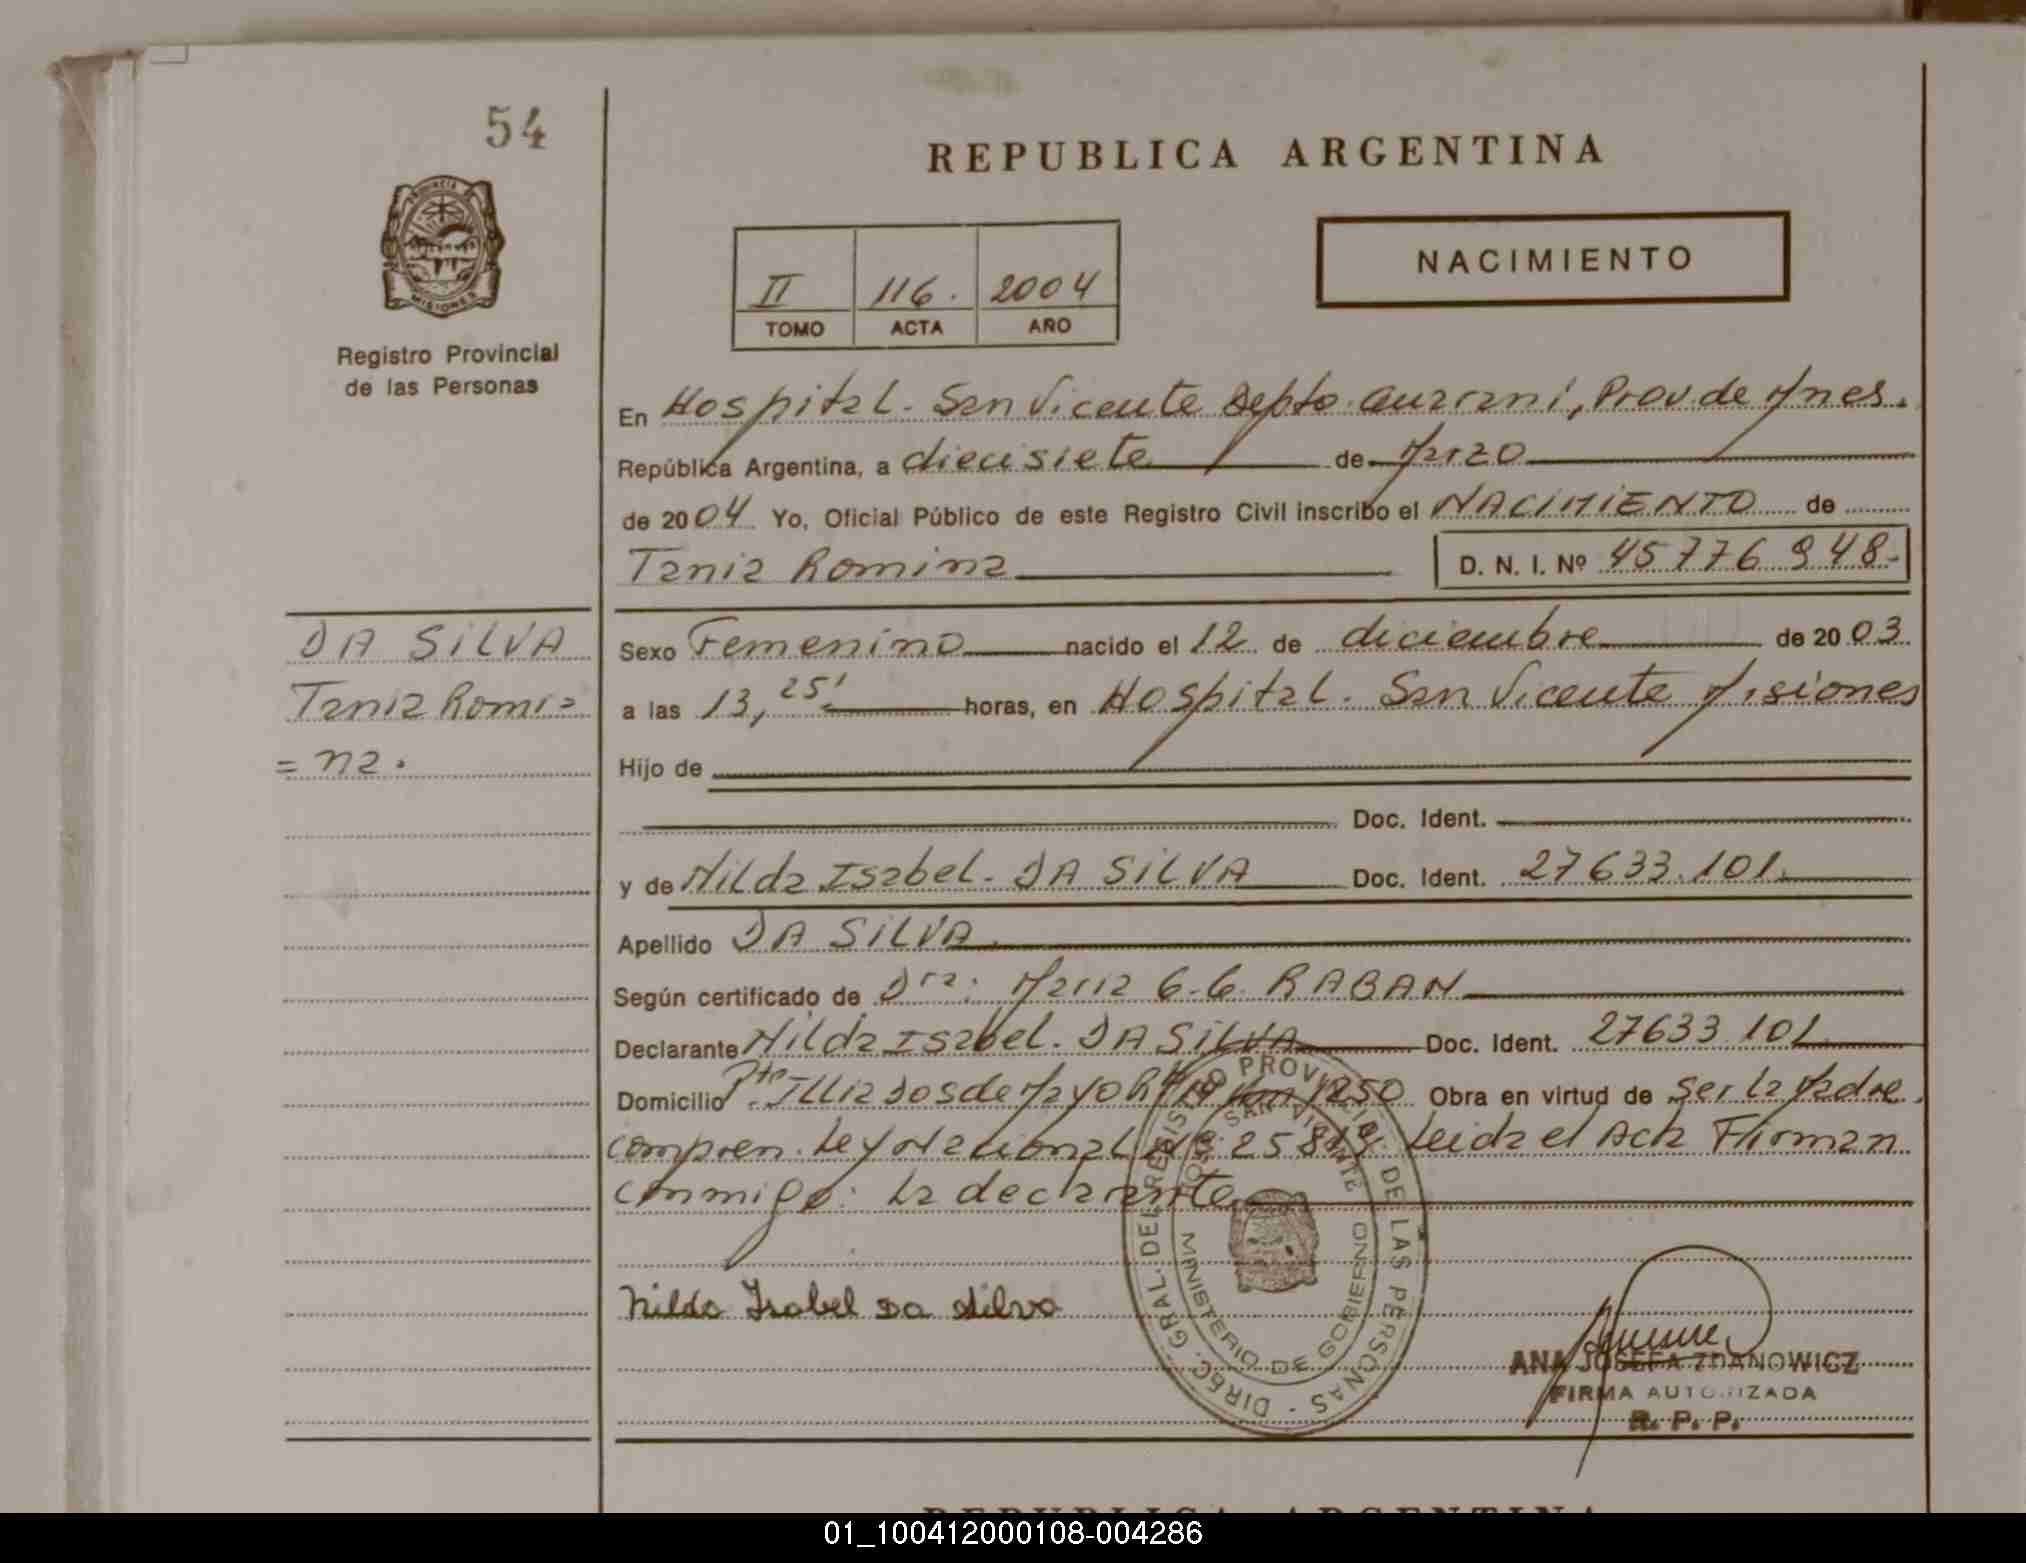 54
REPUBLICA ARGENTINA
PROVINCIA DE
MISIONES
NACIMIENTO
II 116. 2004
TOMO ACTA AÑO
Registro Provincial
de las Personas
En Hospital. San Vicente Depto. Guaraní, Prov. de Mnes.
República Argentina, a diecisiete de Marzo
de 2004 Yo, Oficial Público de este Registro Civil inscribo el NACIMIENTO de
Tania Romina D. N. I. Nº 45776948.-
DA SILVA
Tania Romi=
=na.
Sexo Femenino nacido el 12 de diciembre de 2003
a las 13,25' horas, en Hospital. San Vicente Misiones
Hijo de
Doc. Ident.
y de Nilda Isabel. DA SILVA Doc. Ident. 27633.101.
Apellido DA SILVA
Según certificado de Dra: Maria G.G. RABAN
Declarante Nilda Isabel. DA SILVA Doc. Ident. 27633.101
Domicilio Pte. Illia Dos de Mayo 1250 Obra en virtud de ser la Madre.
compren. Ley Nacional Leida el Acta Firman
conmigo: la declarante
Nilda Isabel Da Silva
DIREC. GRAL. DEL REGISTRO PROVINCIAL DE LAS PERSONAS -
SAN VICENTE
MINISTERIO DE GOBIERNO
ANA JOSEFA ZDANOWICZ
FIRMA AUTORIZADA
R. P. P.
REPUBLICA ARGENTINA
01_100412000108-004286